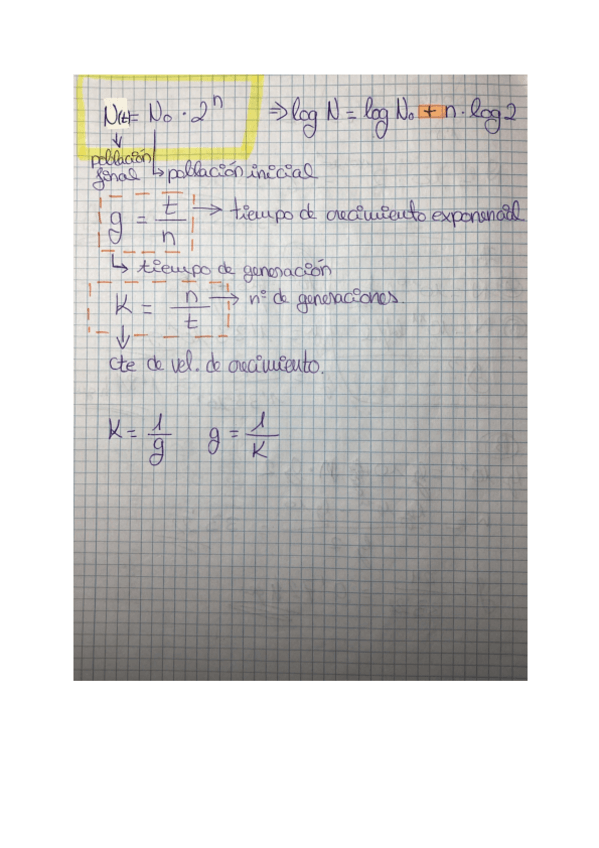 N(t) = N₀ · 2ⁿ ⇒ log N = log N₀ + n · log 2
población final
↳ población inicial
g = t/n → tiempo de crecimiento exponencial
↳ tiempo de generación
K = n/t → nº de generaciones
cte de vel. de crecimiento.
K = 1/g g = 1/K